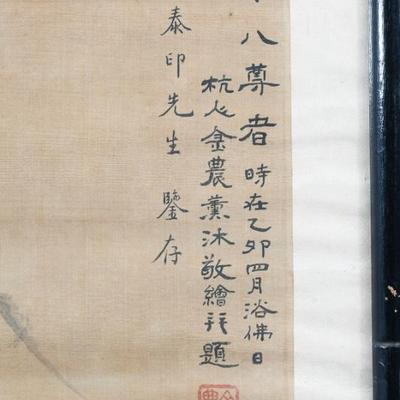 八尊者時在乙卯四月浴佛日
杭人金農薰沐敬繪并題
泰印先生鑒存